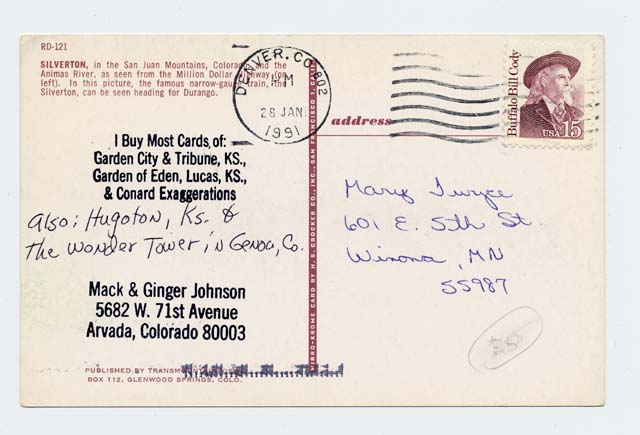 RD-121
SILVERTON, in the San Juan Mountains, Colorado and the
Animas River, as seen from the Million Dollar Highway (on
left). In this picture, the famous narrow-gauge train, the
Silverton, can be seen heading for Durango.
DENVER, CO 802
PM
28 JAN
1991
Buffalo Bill Cody
USA 15
address
I Buy Most Cards of:
Garden City & Tribune, KS.,
Garden of Eden, Lucas, KS.,
& Conard Exaggerations
Also: Hugoton, Ks. &
The Wonder Tower in Genoa, Co.
Mack & Ginger Johnson
5682 W. 71st Avenue
Arvada, Colorado 80003
Mary Twyce
601 E. 5th St.
Winona, MN
55987
MIRRO-KROME CARD BY H. S. CROCKER CO., INC., SAN FRANCISCO 1, CALIF.
PUBLISHED BY
BOX 112, GLENWOOD SPRINGS, COLO.